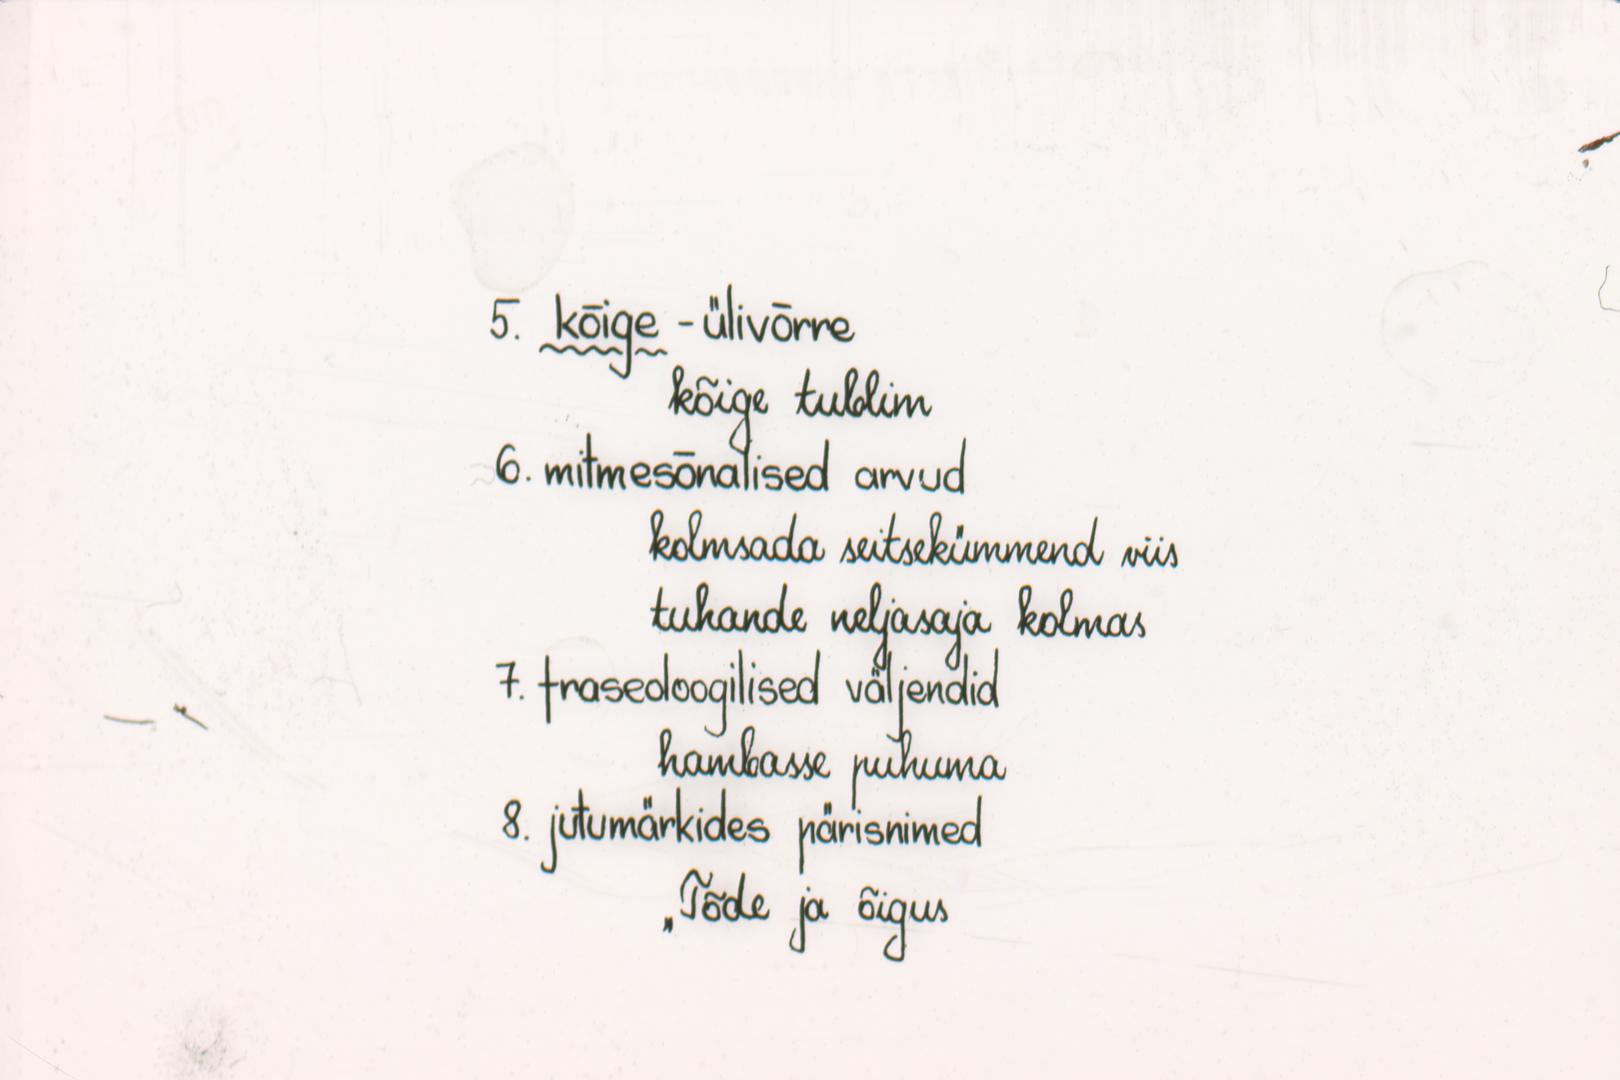 5. kõige - ülivõrre
kõige tublim
6. mitmesõnalised arvud
kolmsada seitsekümmend viis
tuhande neljasaja kolmas
7. fraseoloogilised väljendid
hambasse puhuma
8. jutumärkides pärisnimed
„Tõde ja õigus